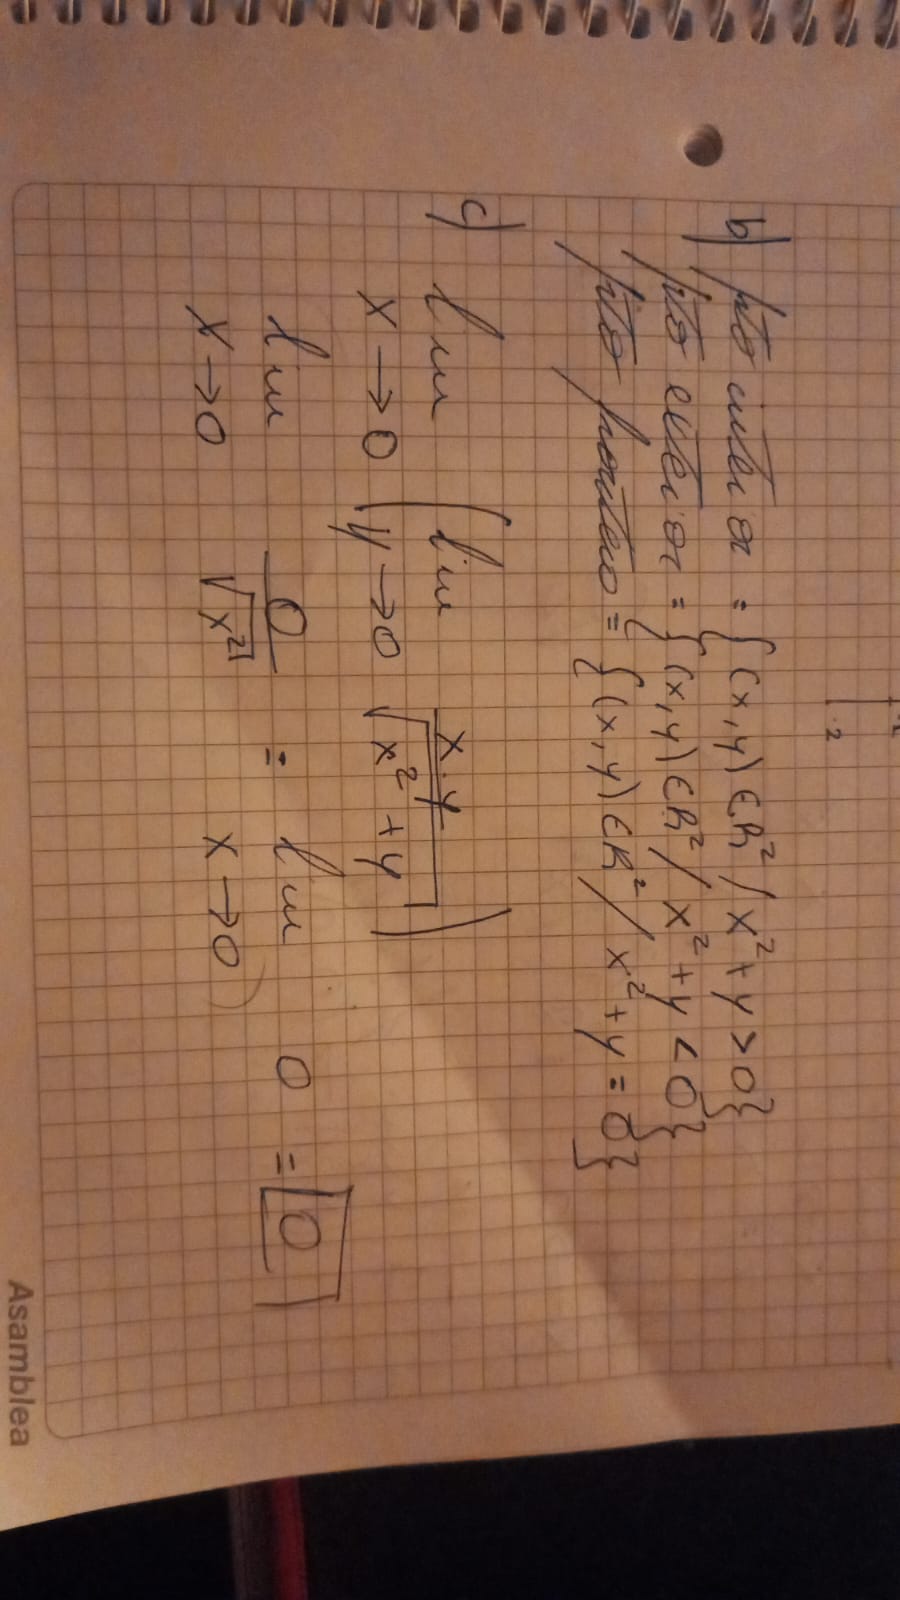 -2
b) pto interior = {(x,y) ∈ R² / x² + y > 0}
pto exterior = {(x,y) ∈ R² / x² + y < 0}
pto frontera = {(x,y) ∈ R² / x² + y = 0}
c) lim x→0 ( lim y→0 x.y / √(x² + y) )
lim x→0 0 / √x² = lim x→0 0 = 0
Asamblea